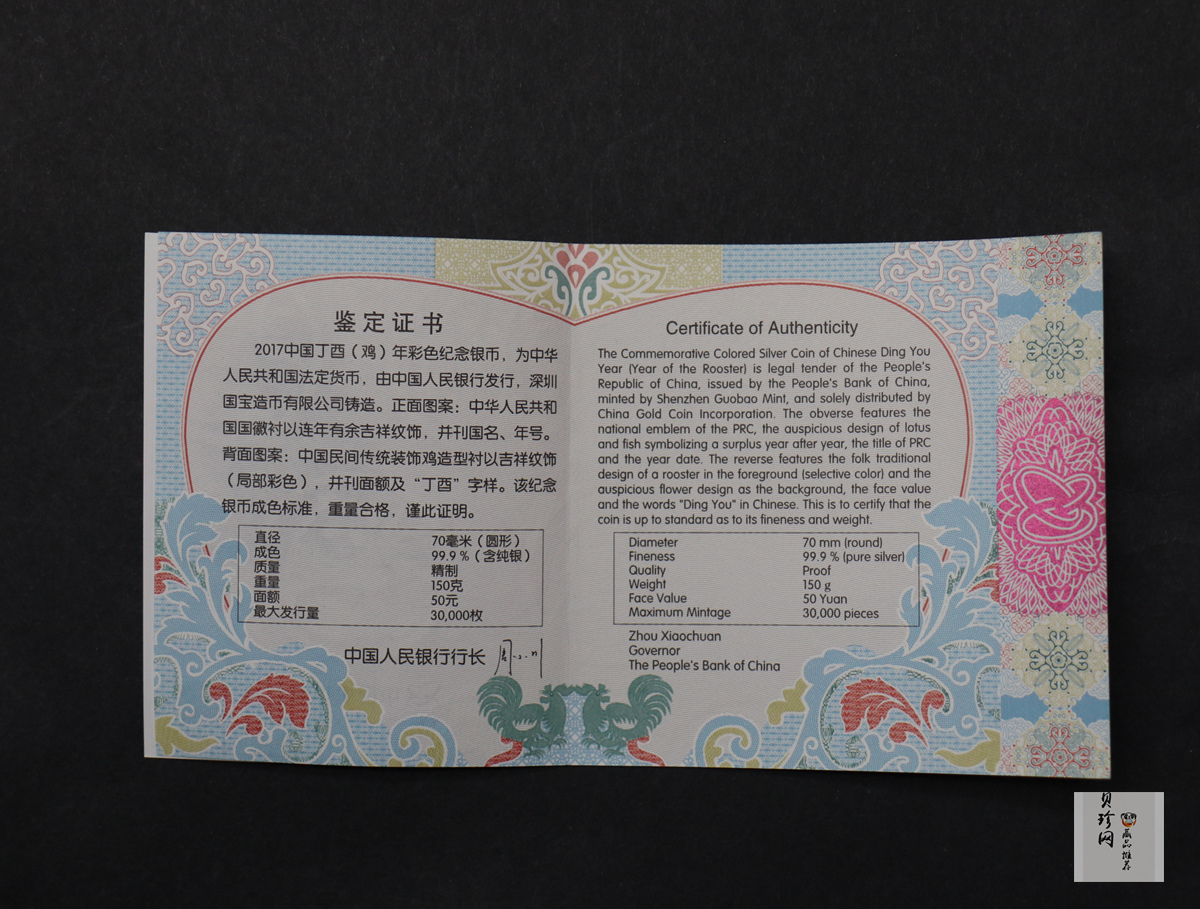 鉴定证书
2017中国丁酉（鸡）年彩色纪念银币，为中华
人民共和国法定货币，由中国人民银行发行，深圳
国宝造币有限公司铸造。正面图案：中华人民共和
国国徽衬以连年有余吉祥纹饰，并刊国名、年号。
背面图案：中国民间传统装饰鸡造型衬以吉祥纹饰
（局部彩色），并刊面额及“丁酉”字样。该纪念
银币成色标准，重量合格，谨此证明。
直径 70毫米（圆形）
成色 99.9 %（含纯银）
质量 精制
重量 150克
面额 50元
最大发行量 30,000枚
中国人民银行行长
Certificate of Authenticity
The Commemorative Colored Silver Coin of Chinese Ding You
Year (Year of the Rooster) is legal tender of the People's
Republic of China, issued by the People's Bank of China,
minted by Shenzhen Guobao Mint, and solely distributed by
China Gold Coin Incorporation. The obverse features the
national emblem of the PRC, the auspicious design of lotus
and fish symbolizing a surplus year after year, the title of PRC
and the year date. The reverse features the folk traditional
design of a rooster in the foreground (selective color) and the
auspicious flower design as the background, the face value
and the words "Ding You" in Chinese. This is to certify that the
coin is up to standard as to its fineness and weight.
Diameter 70 mm (round)
Fineness 99.9 % (pure silver)
Quality Proof
Weight 150 g
Face Value 50 Yuan
Maximum Mintage 30,000 pieces
Zhou Xiaochuan
Governor
The People's Bank of China
贝珍网
藏品推荐